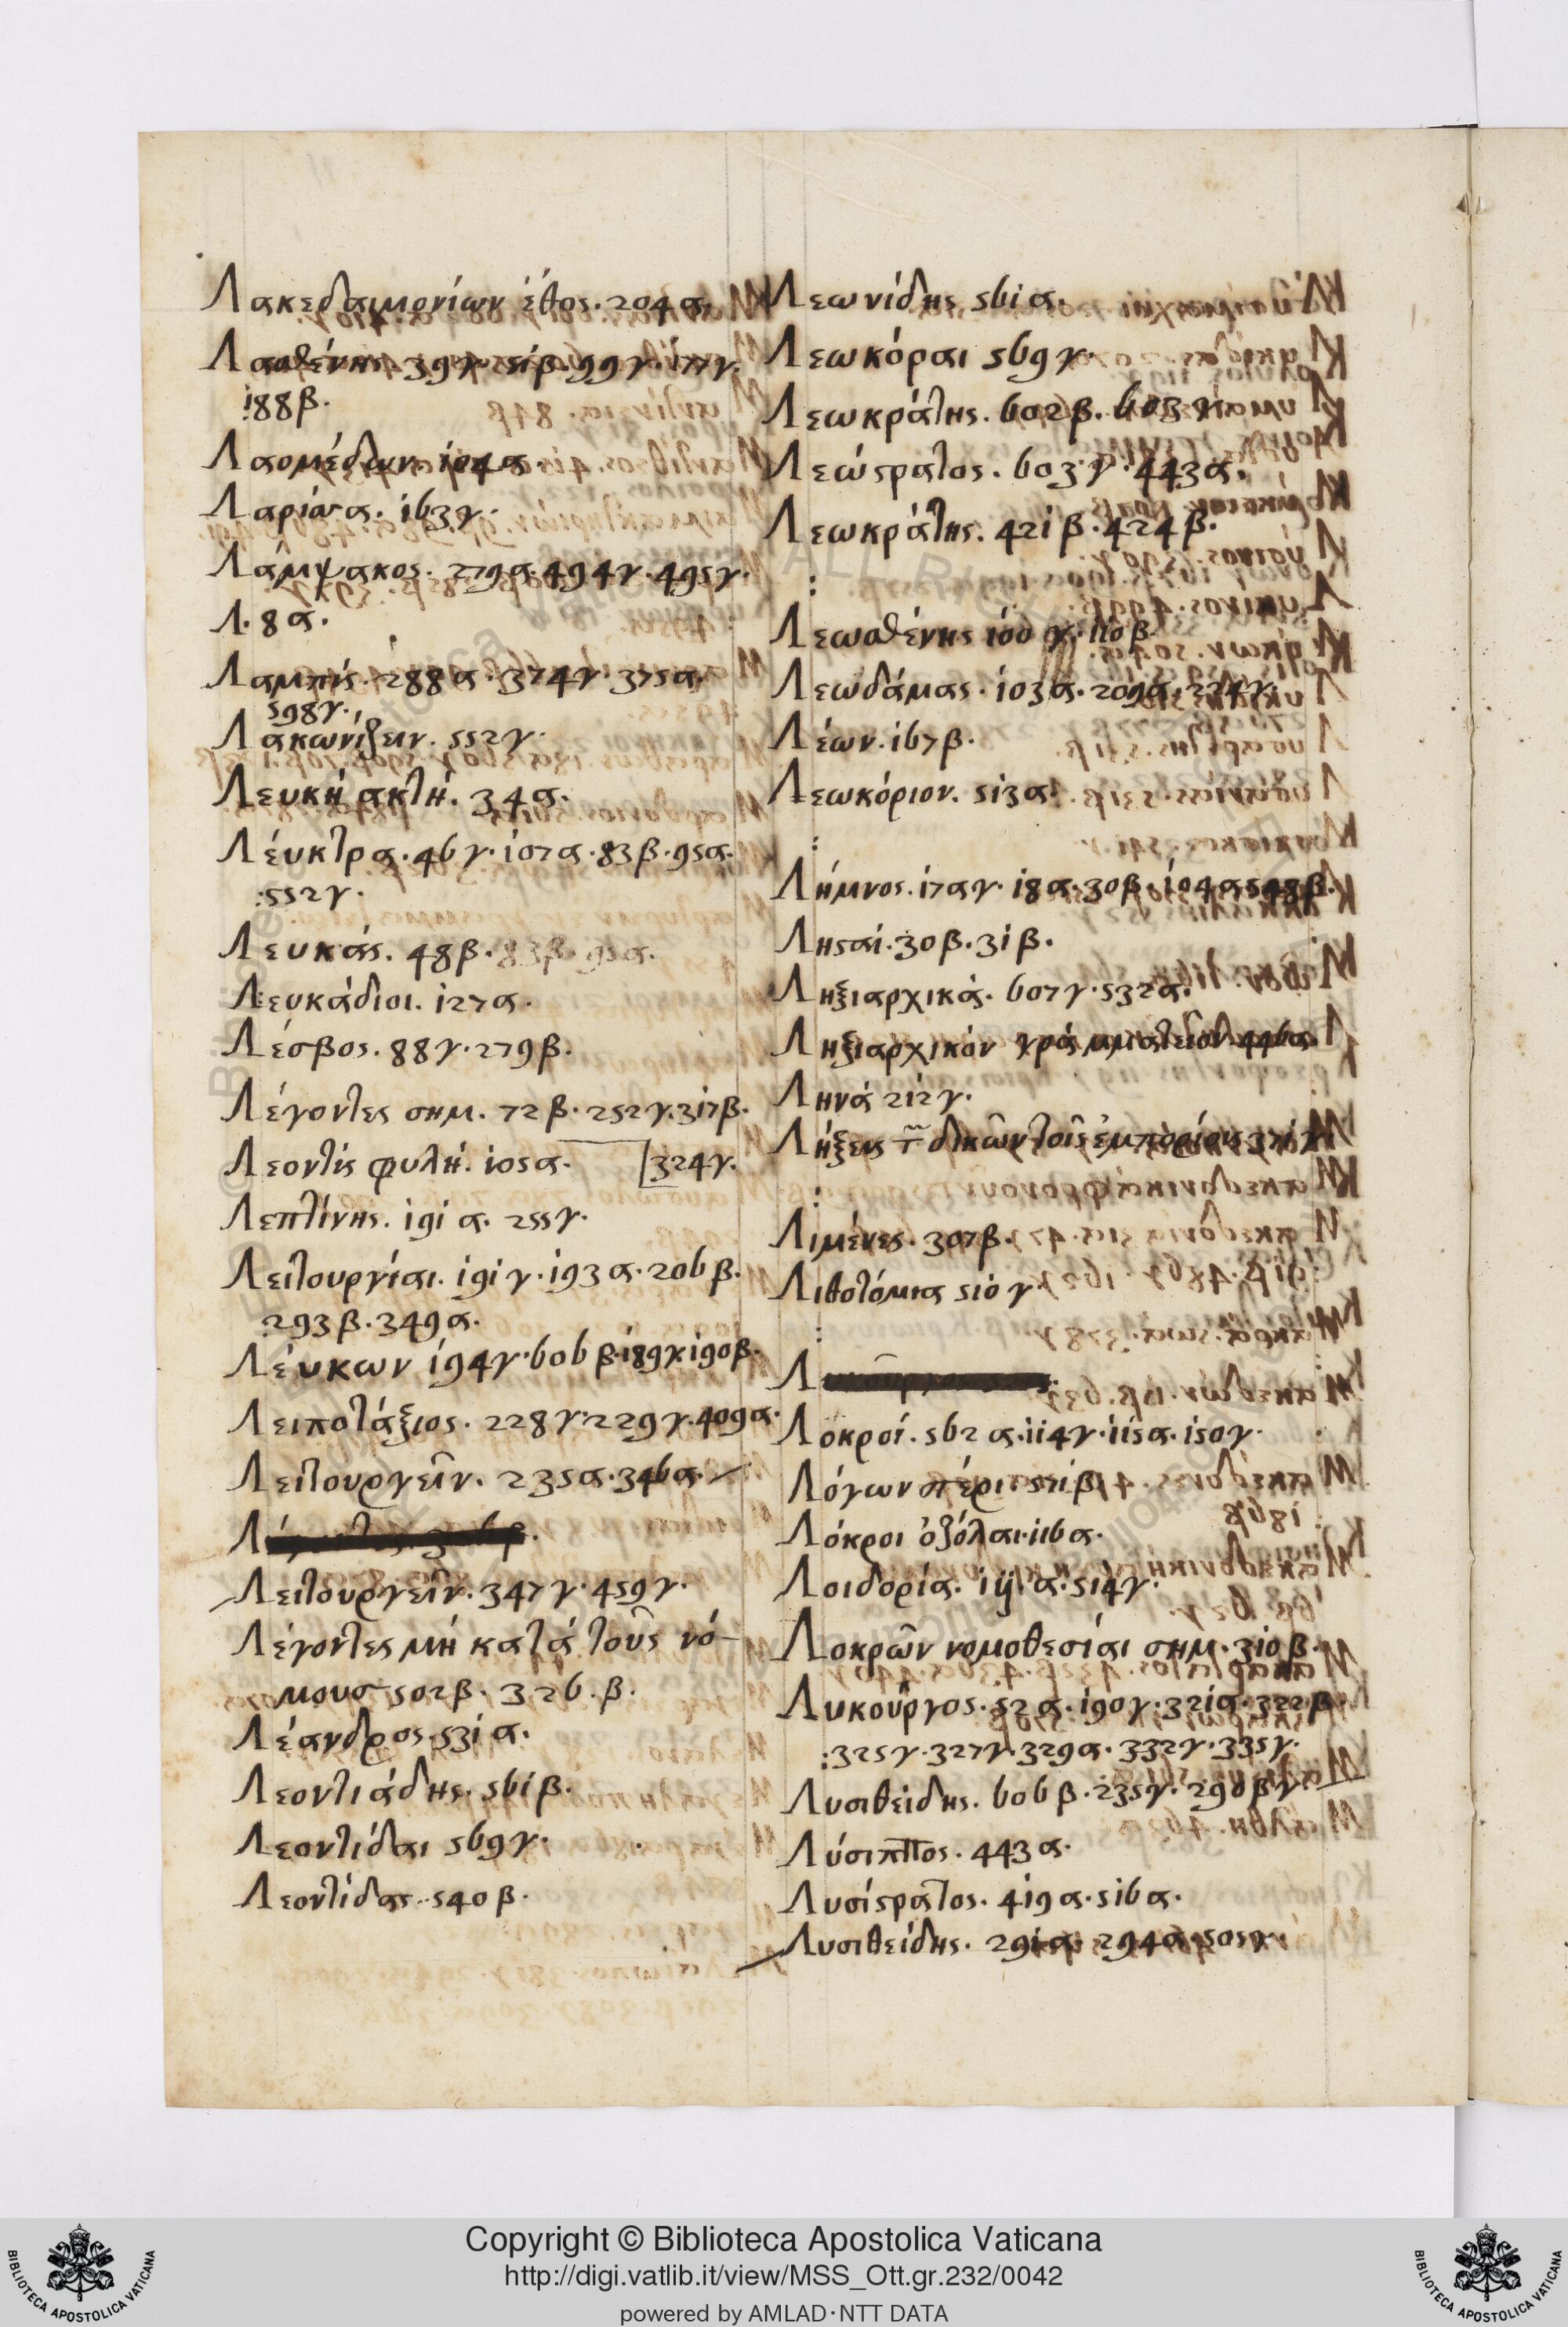 Λακεδαιμονίων έθος. 204 α.
Λασθένης. 39 γ. 51 β. 99 γ. 177 γ.
188 β.
Λαομέδων. 104 α
Λαρίσσα. 163 γ.
Λάμψακος. 279 α. 494 γ. 495 γ.
Λ. 8 α.
Λαμπίς. 288 α. 374 γ. 375 α.
598 γ.
Λακωνίζειν. 552 γ.
Λευκή ακτή. 34 α.
Λέυκτρα. 46 γ. 107 α. 83 β. 95 α.
:552 γ.
Λευκάς. 48 β. 83 β. 95 α.
Λευκάδιοι. 127 α.
Λέσβος. 88 γ. 279 β.
Λέγοντες σημ. 72 β. 252 γ. 317 β.
Λεοντίς φυλή. 105 α. [324 γ.
Λεπτίνης. 191 α. 255 γ.
Λειτουργίαι. 191 γ. 193 α. 206 β.
293 β. 349 α.
Λέυκων 194 γ. 606 β. 189 γ. 190 β.
Λειποτάξιος. 228 γ. 229 γ. 409 α.
Λειτουργεῖν. 235 α. 346 α.
Λ
Λειτουργεῖν. 347 γ. 459 γ.
Λέγοντες μή κατά τοῦς νό-
μους 502 β. 326. β.
Λέανδρος. 531 α.
Λεοντιάδης. 561 β.
Λεοντίδαι 569 γ.
Λεοντίδας. 540 β.
Λεωνίδης 561 α.
Λεωκόραι 569 γ.
Λεωκράτης. 602 β. 603 γ.
Λεώστρατος. 603 γ. 443 α.
Λεωκράτης. 421 β. 424 β.
:
Λεωσθένης 100 γ. 110 β
Λεωδάμας. 103 α. 209 α. 224 γ.
Λέων. 167 β.
Λεωκόριον. 513 α.
:
Λήμνος. 17 α γ. 18 α. 30 β. 104 α 548 β.
Ληςαί. 30 β. 31 β.
Ληξιαρχικά. 607 γ. 532 α.
Ληξιαρχικόν γράμματεῖον 446 α.
Ληνά 212 γ.
Λήξεις τ̃ δικῶν τοῖς ἐμπορίοις 371 γ.
:
Λιμένες. 307 β.
Λιθοτόμια 510 γ.
:
Λ
Λοκροί. 562 α. 114 γ. 115 α. 150 γ.
Λόγων πέρι 571 β
Λόκροι ὀζόλαι. 116 α.
Λοιδορία. 1 ij. α. 514 γ.
Λοκρῶν νομοθεσίαι σημ. 310 β.
Λυκοῦργος. 52 α. 190 γ. 321 α. 322 β.
:325 γ. 327 γ. 329 α. 332 γ. 335 γ.
Λυσιθείδης. 606 β. 235 γ. 290 β γ.
Λύσιππος. 443 α.
Λυσίςρατος. 419 α. 516 α.
Λυσιθείδης. 291 α. 294 α. 505 γ.
Copyright © Biblioteca Apostolica Vaticana
http://digi.vatlib.it/view/MSS_Ott.gr.232/0042
powered by AMLAD·NTT DATA
BIBLIOTECA APOSTOLICA VATICANA
BIBLIOTECA APOSTOLICA VATICANA